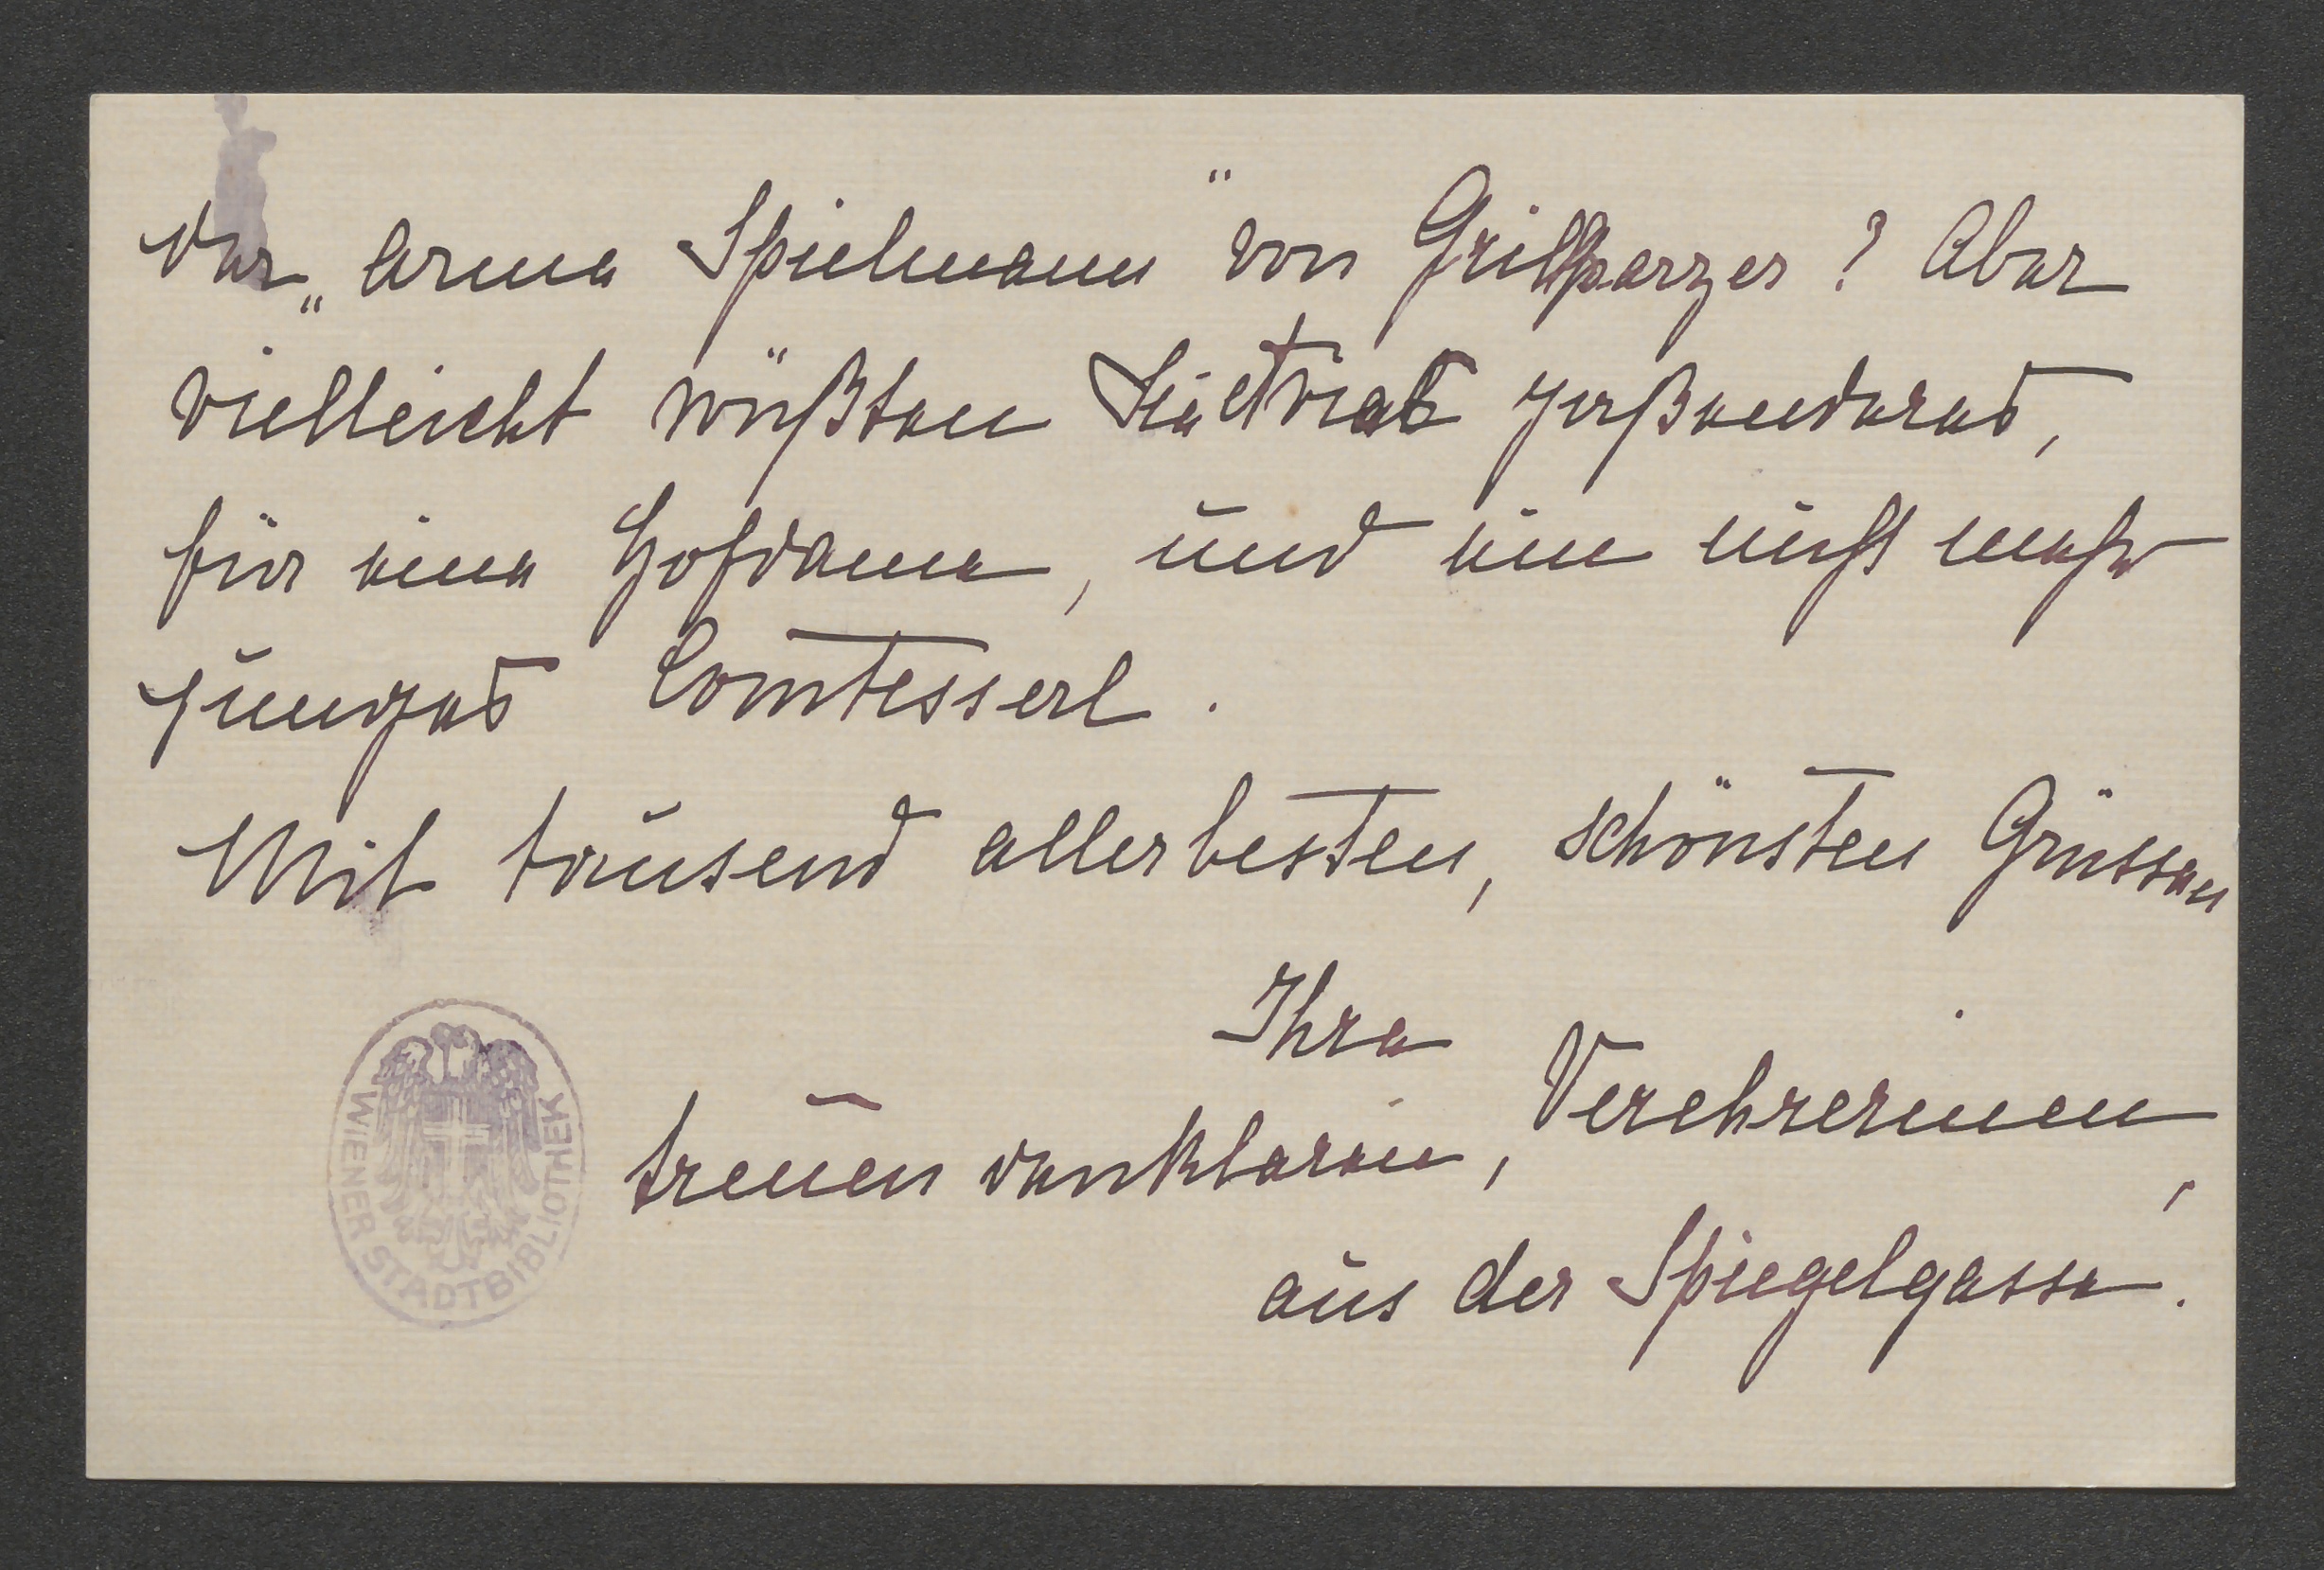 der „arme Spielmann" von Grillparzer? Aber
vielleicht wüßten Sie etwas passenderes,
für eine Hofdame, und ein nicht mehr
junges Comtesserl.
Mit tausend allerbesten, schönsten Grüssen
Ihre
treuen dankbaren, Verehrerinen,
aus der Spiegelgasse.
WIENER STADTBIBLIOTHEK